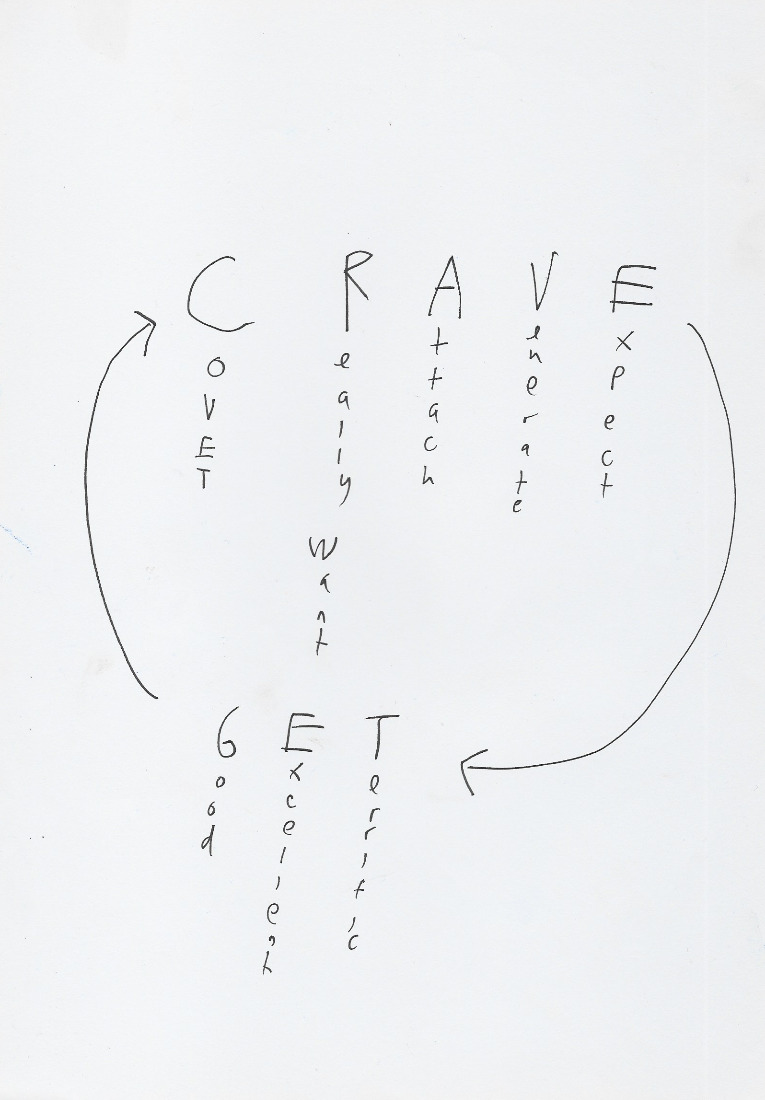 CRAVE
COVET
Really want
Attach
Venerate
Expect
GET
Good
Excellent
Terrific